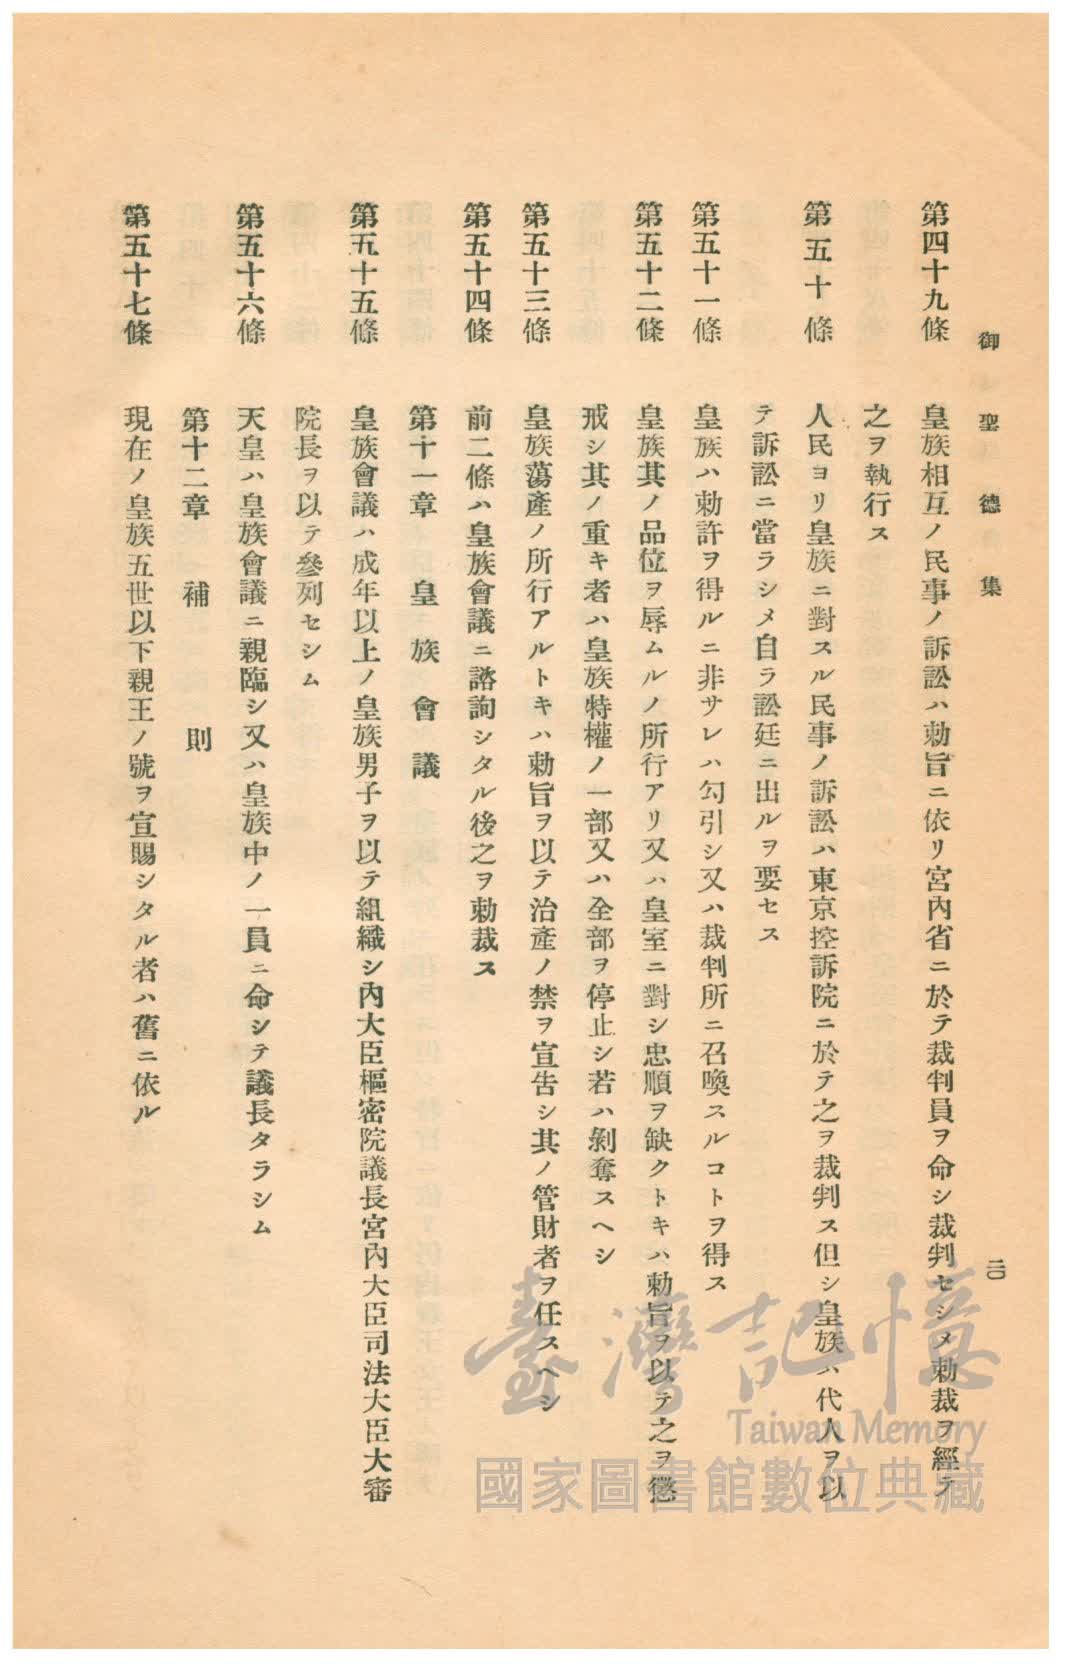 御聖德集
二〇
第四十九條　皇族相互ノ民事ノ訴訟ハ勅旨ニ依リ宮內省ニ於テ裁判員ヲ命シ裁判セシメ勅裁ヲ經テ
之ヲ執行ス
第五十條　人民ヨリ皇族ニ對スル民事ノ訴訟ハ東京控訴院ニ於テ之ヲ裁判ス但シ皇族ハ代人ヲ以
テ訴訟ニ當ラシメ自ラ訟廷ニ出ルヲ要セス
第五十一條　皇族ハ勅許ヲ得ルニ非サレハ勾引シ又ハ裁判所ニ召喚スルコトヲ得ス
第五十二條　皇族其ノ品位ヲ辱ムルノ所行アリ又ハ皇室ニ對シ忠順ヲ缺クトキハ勅旨ヲ以テ之ヲ懲
戒シ其ノ重キ者ハ皇族特權ノ一部又ハ全部ヲ停止シ若ハ剝奪スヘシ
第五十三條　皇族蕩產ノ所行アルトキハ勅旨ヲ以テ治產ノ禁ヲ宣告シ其ノ管財者ヲ任スヘシ
第五十四條　前二條ハ皇族會議ニ諮詢シタル後之ヲ勅裁ス
第十一章　皇族會議
第五十五條　皇族會議ハ成年以上ノ皇族男子ヲ以テ組織シ內大臣樞密院議長宮內大臣司法大臣大審
院長ヲ以テ參列セシム
第五十六條　天皇ハ皇族會議ニ親臨シ又ハ皇族中ノ一員ニ命シテ議長タラシム
第十二章　補則
第五十七條　現在ノ皇族五世以下親王ノ號ヲ宣賜シタル者ハ舊ニ依ル
臺灣記憶
Taiwan Memory
國家圖書館數位典藏